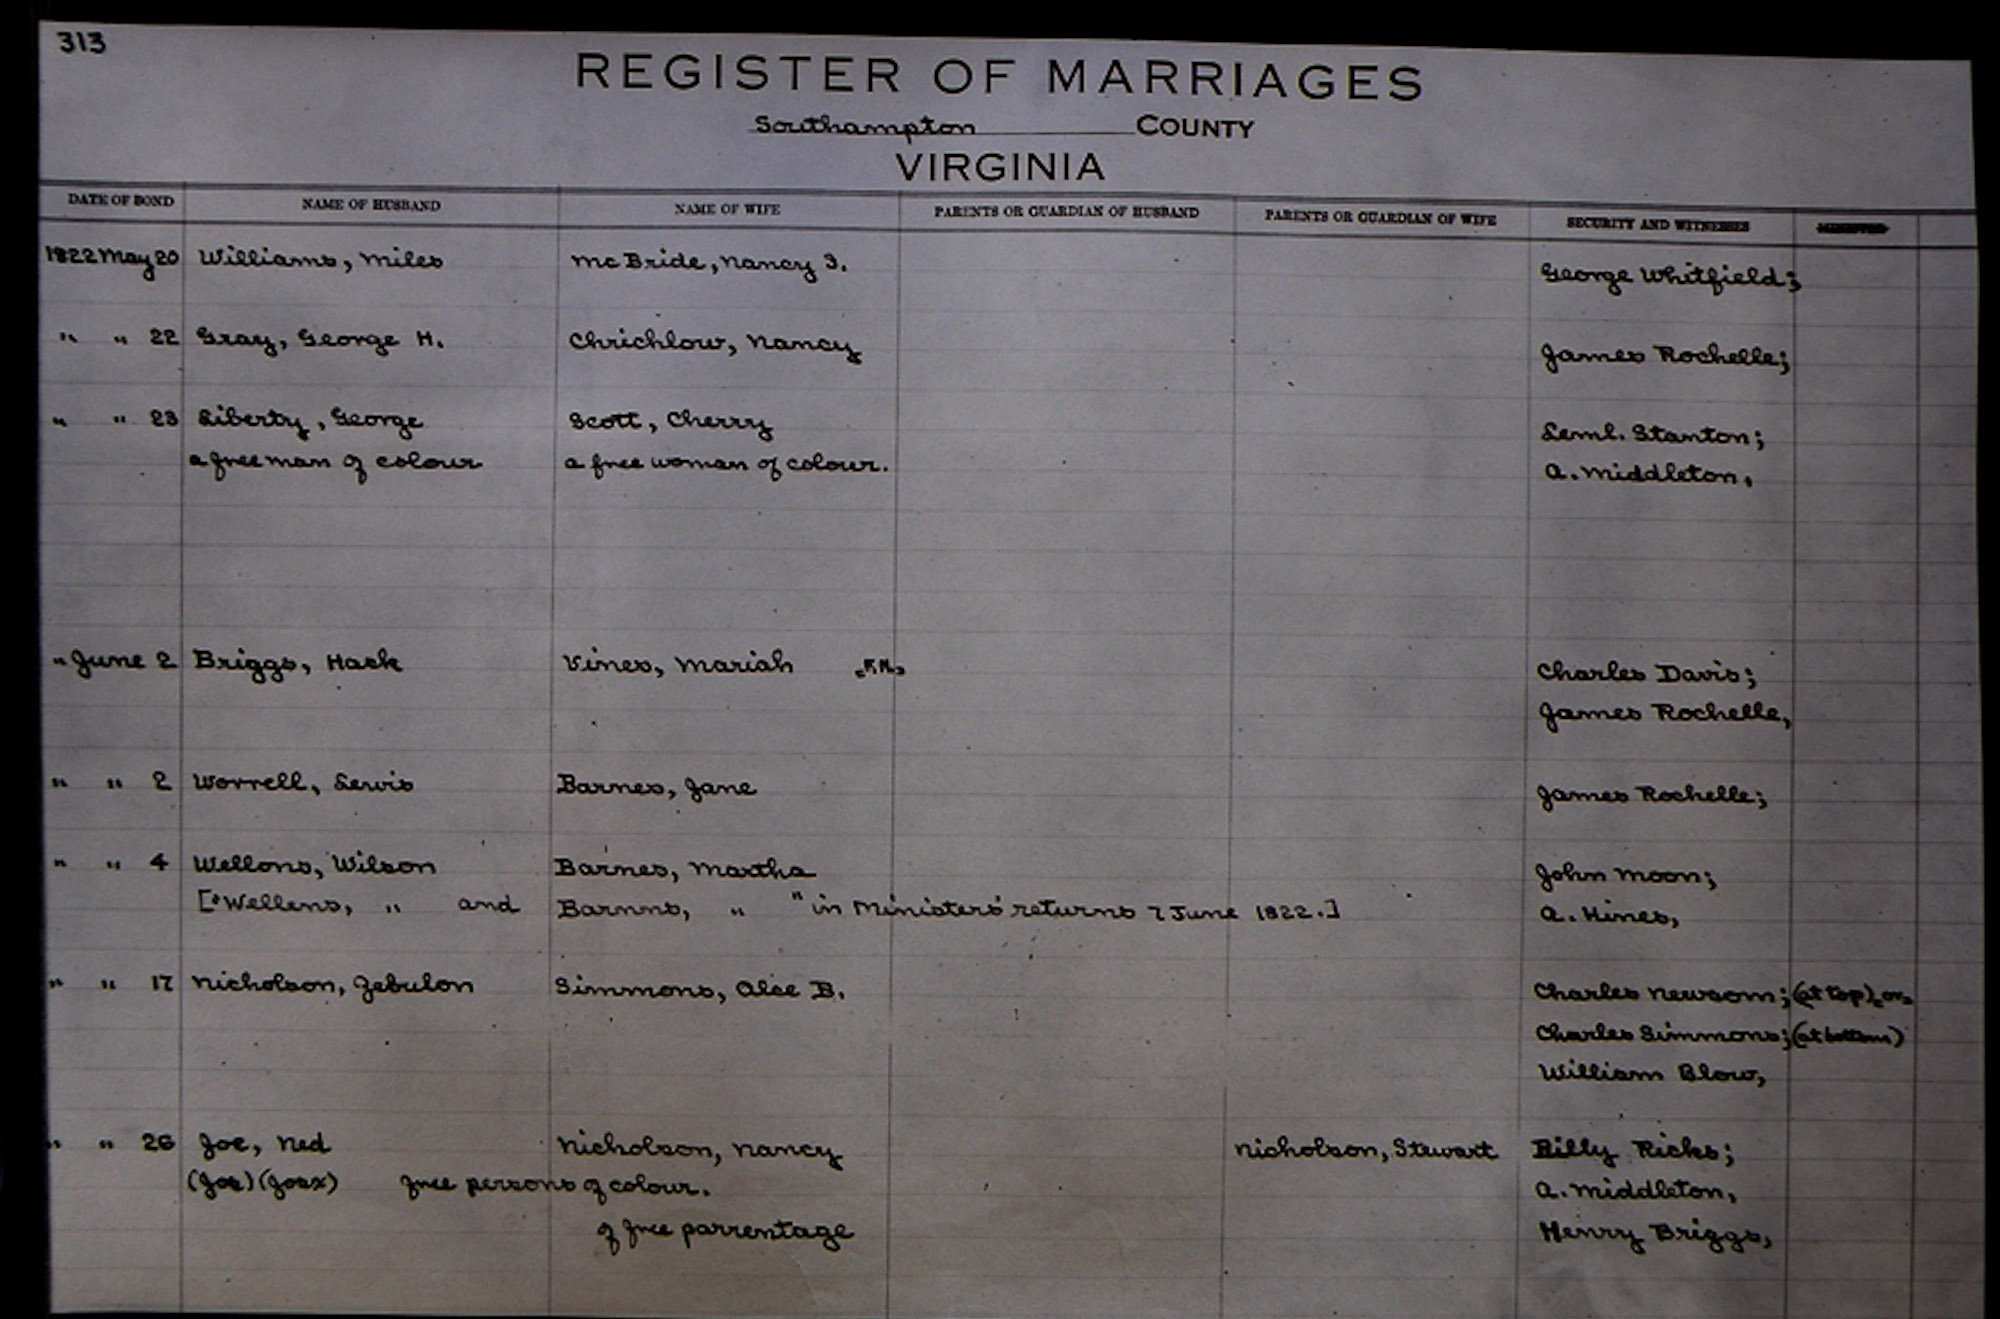 313
REGISTER OF MARRIAGES
Southampton COUNTY
VIRGINIA
DATE OF BOND NAME OF HUSBAND NAME OF WIFE PARENTS OR GUARDIAN OF HUSBAND PARENTS OR GUARDIAN OF WIFE SECURITY AND WITNESSES MINISTER
1822 May 20 Williams, Miles McBride, Nancy 3. George Whitfield;
" " 22 Gray, George H. Chrichlow, Nancy James Rochelle;
" " 23 Liberty, George Scott, Cherry Seml. Stanton;
a free man of colour a free woman of colour. A. Middleton,
" June 2 Briggs, Hack Vines, Mariah "F.N." Charles Davis;
James Rochelle,
" " 2 Worrell, Lewis Barnes, Jane James Rochelle;
" " 4 Wellons, Wilson Barnes, Martha John Moon;
["Wellens, " and Barnns, " " in Ministers' returns 7 June 1822.] A. Hines,
" " 17 Nicholson, Zebulon Simmons, Alce B. Charles Newsom; (at top), or,
Charles Simmons; (at bottom)
William Blow,
" " 26 Joe, Ned Nicholson, Nancy Nicholson, Stewart Billy Ricks;
(Joe) (Joex) free persons of colour. A. Middleton,
of free parrentage Henry Briggs,